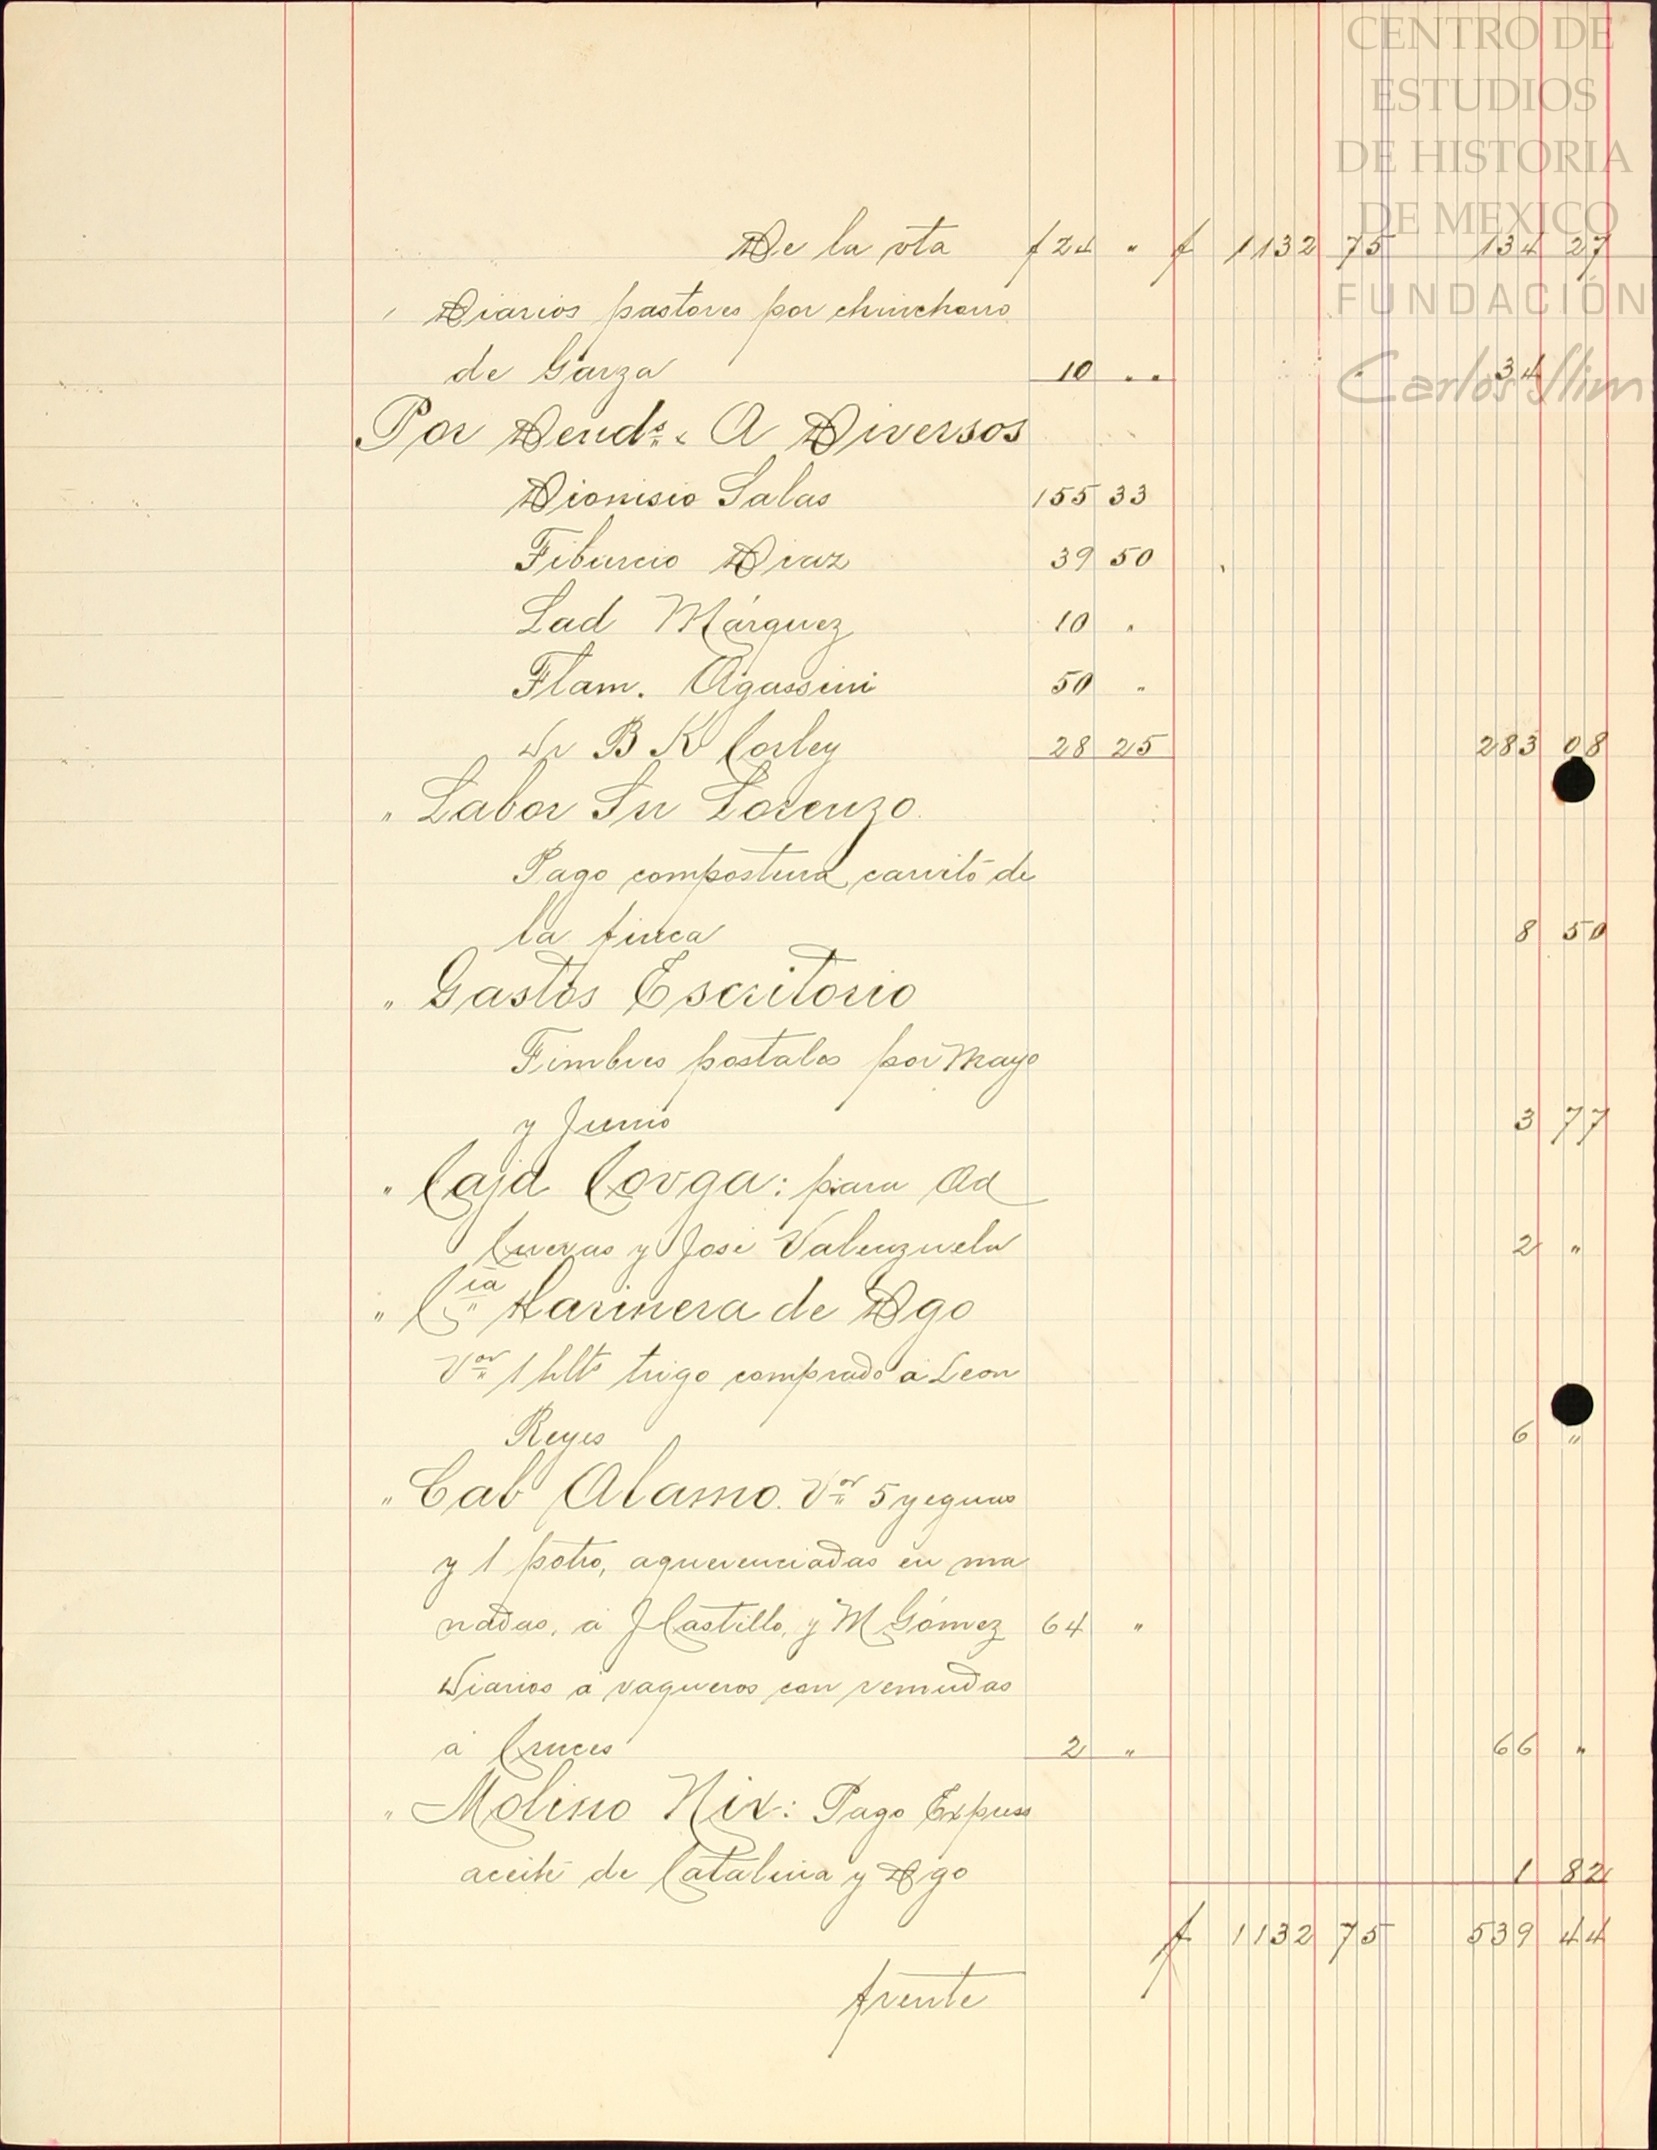 CENTRO DE
ESTUDIOS
DE HISTORIA
DE MEXICO
FUNDACIÓN
Carlos Slim
De la vta $ 24 " $ 1132 75 134 27
" Diarios pastores por chinchorro
de Garza 10 " " 34
Por Deuds. A Diversos
Dionisio Salas 155 33
Tiburcio Diaz 39 50
Lad Márquez 10 "
Flam. Agassini 50 "
Dr B K Corley 28 25 283 08
" Labor Sn Lorenzo.
Pago compostura carrito de
la finca 8 50
" Gastos Escritorio
Timbres postales por Mayo
y Junio 3 77
" Caja Covga: para Ad
Cuevas y José Valenzuela 2 "
" Cia Harinera de Dgo
Vor 1 hlts trigo comprado á Leon
Reyes 6 "
" Cab Alamo. Vor 5 yeguas
y 1 potro, aquerenciadas en ma
nadas, á J Castillo, y M Gómez 64 "
Diarios á vaqueros con remudas
á Cruces 2 " 66 "
" Molino Nix: Pago Express
aceite de Catalina y Dgo 1 82
$ 1132 75 539 44
frente